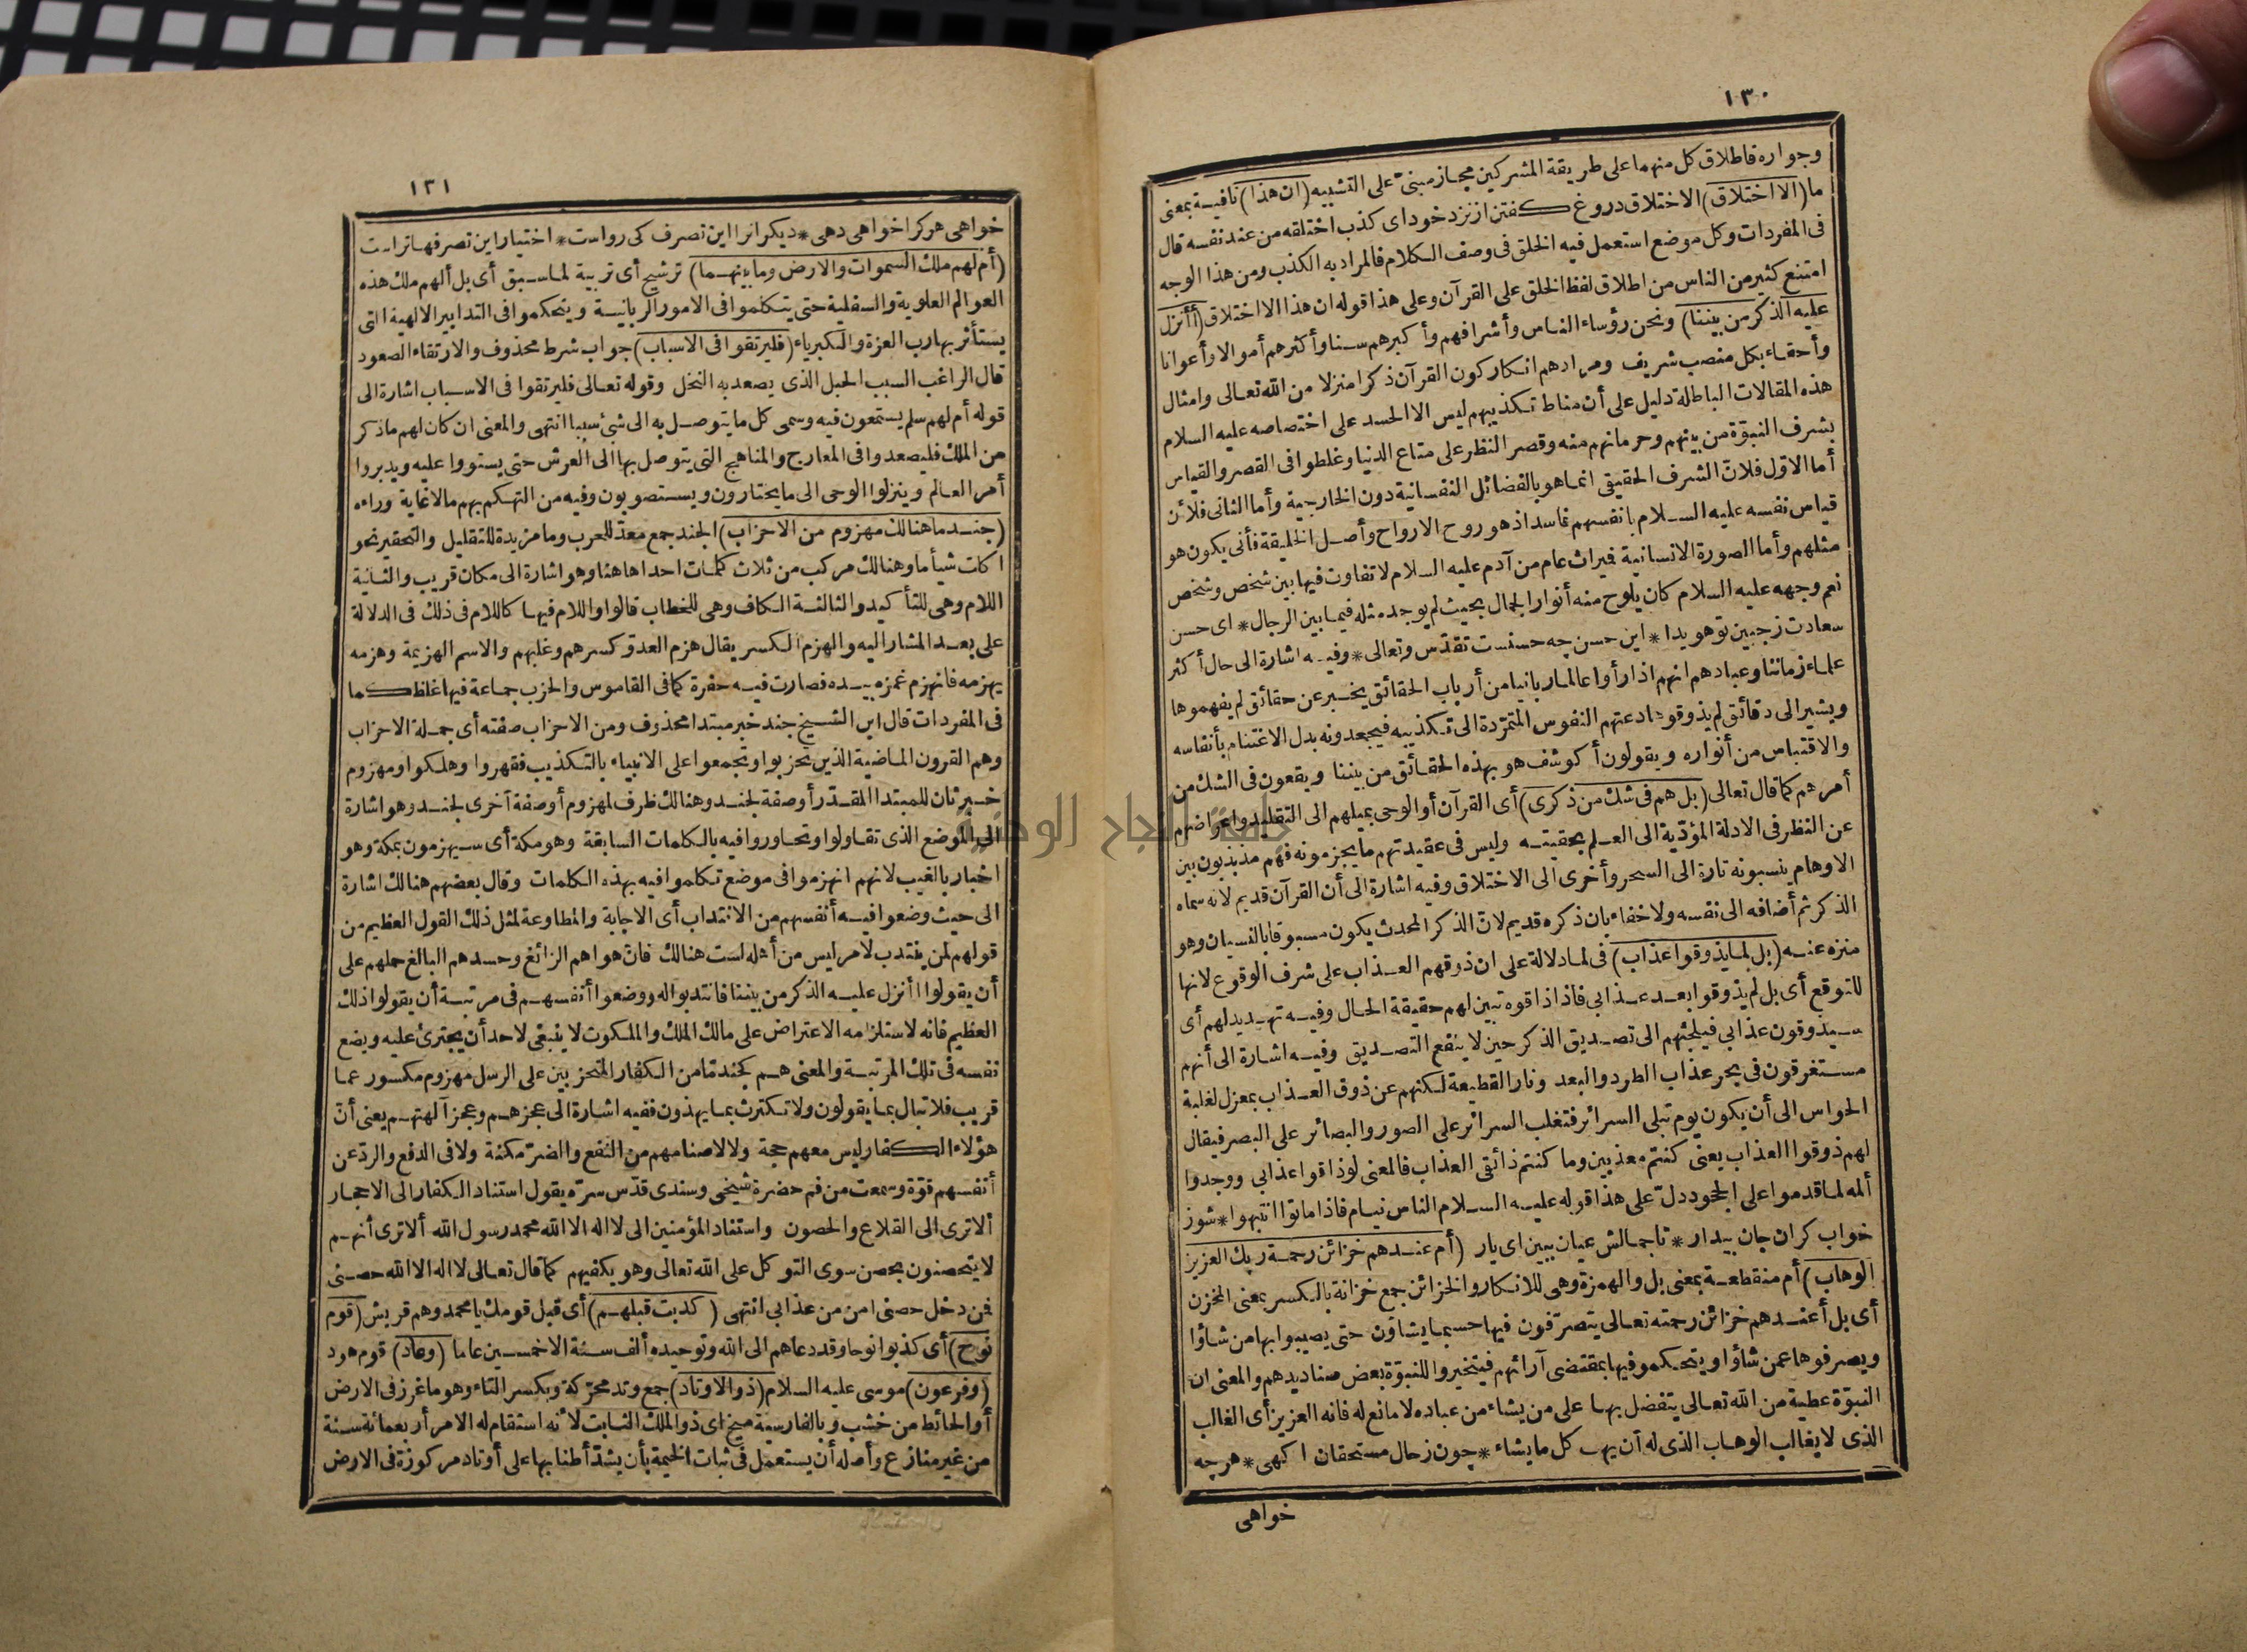 ١٣٠
وجواره فاطلاق كل منهما على طريقة المشركين مجاز مبنىّ على التشبيه (ان هذا) نافية بمعنى
ما (الا اختلاق) الاختلاق دروغ كفتن از نزد خود اى كذب اختلقه من عند نفسه قال
فى المفردات وكل موضع استعمل فيه الخلق فى وصف الكلام فالمراد به الكذب ومن هذا الوجه
امتنع كثير من الناس من اطلاق لفظ الخلق على القرآن وعلى هذا قوله ان هذا الا اختلاق (أأنزل
عليه الذكر من بيننا) ونحن رؤساء الناس وأشرافهم وأكبرهم سنا وأكثرهم أموالا وأعوانا
وأحقاء بكل منصب شريف ومرادهم انكار كون القرآن ذكرا منزلا من الله تعالى وامثال
هذه المقالات الباطلة دليل على أن مناط تكذيبهم ليس الا الحسد على اختصاصه عليه السلام
بشرف النبوّة من بينهم وحرمانهم منه وقصر النظر على متاع الدنيا وغلطوا فى القصر والقياس
أما الاوّل فلانّ الشرف الحقيقى انما هو بالفضائل النفسانية دون الخارجية وأما الثانى فلأن
قياس نفسه عليه السلام بانفسهم فاسد اذ هو روح الارواح وأصل الخليقة فأنى يكون هو
مثلهم وأما الصورة الانسانية فيراث عام من آدم عليه السلام لا تفاوت فيها بين شخص وشخص
نعم وجهه عليه السلام كان يلوح منه أنوار الجمال بحيث لم يوجد مثله فيما بين الرجال * اى حسن
سعادت ز جبين تو هويدا * اين حسن چه حسنست تقدّس وتعالى * وفيه اشارة الى حال أكثر
علماء زماننا وعبادهم انهم اذا رأوا عالما ربانيا من أرباب الحقائق يخبر عن حقائق لم يفهموها
ويشير الى دقائق لم يذوقوها دعتهم النفوس المتمرّدة الى تكذيبه فيجحدونه بدل الاغتنام بأنفاسه
والاقتباس من أنواره ويقولون أكوشف هو بهذه الحقائق من بيننا ويقعون فى الشك من
أمرهم كما قال تعالى (بل هم فى شك من ذكرى) أى القرآن أو الوحى بميلهم الى التقليد واعراضهم
عن النظر فى الادلة المؤدّية الى العلم بحقيته وليس فى عقيدتهم ما يجزمونه فهم مذبذبون بين
الاوهام ينسبونه تارة الى السحر وأخرى الى الاختلاق وفيه اشارة الى أن القرآن قديم لانه سماه
الذكر ثم أضافه الى نفسه ولا خفاء بان ذكره قديم لانّ الذكر المحدث يكون مسبوقا بالنسيان وهو
منزه عنه (بل لما يذوقوا عذاب) فى لما دلالة على ان ذوقهم العذاب على شرف الوقوع لانها
للتوقع أى بل لم يذوقوا بعد عذابى فاذا ذاقوه تبين لهم حقيقة الحال وفيه تهديد لهم أى
سيذوقون عذابى فيلجئهم الى تصديق الذكر حين لا ينفع التصديق وفيه اشارة الى أنهم
مستغرقون فى بحر عذاب الطرد والبعد ونار القطيعة لكنهم عن ذوق العذاب بمعزل لغلبة
الحواس الى أن يكون يوم تبلى السرائر فتغلب السرائر على الصور والبصائر على البصر فيقال
لهم ذوقوا العذاب يعنى كنتم معذبين وما كنتم ذائقى العذاب فالمعنى لو ذاقوا عذابى ووجدوا
ألمه لما قدموا على الجحود دلّ على هذا قوله عليه السلام الناس نيام فاذا ماتوا انتبهوا * شوز
خواب كران جان بيدار * تا جمالش عيان ببين اى يار (أم عندهم خزائن رحمة ربك العزيز
الوهاب) أم منقطعة بمعنى بل والهمزة وهى للانكار والخزائن جمع خزانة بالكسر بمعنى المخزن
أى بل أعندهم خزائن رحمته تعالى يتصرّفون فيها حسبما يشاؤن حتى يصيبوا بها من شاؤا
ويصرفوها عمن شاؤا ويتحكموا فيها بمقتضى آرائهم فيتخيروا للنبوّة بعض صناديدهم والمعنى ان
النبوّة عطية من الله تعالى يتفضل بها على من يشاء من عباده لا مانع له فانه العزيز أى الغالب
الذى لا يغالب الوهاب الذى له أن يهب كل ما يشاء * چون ز حال مستحقان اكهى * هر چه
خواهى
١٣١
خواهى هر كرا خواهى دهى * ديكرانرا اين تصرف كى رواست * اختيار اين تصرفها تراست
(أم لهم ملك السموات والارض وما بينهما) ترشيح أى تربية لما سبق أى بل ألهم ملك هذه
العوالم العلوية والسفلية حتى يتكلموا فى الامور الربانية ويتحكموا فى التدابير الالهية التى
يستأثر بها رب العزة والكبرياء (فليرتقوا فى الاسباب) جواب شرط محذوف والارتقاء الصعود
قال الراغب السبب الحبل الذى يصعد به النخل وقوله تعالى فليرتقوا فى الاسباب اشارة الى
قوله أم لهم سلم يستمعون فيه وسمى كل ما يتوصل به الى شئ سببا انتهى والمعنى ان كان لهم ما ذكر
من الملك فليصعدوا فى المعارج والمناهج التى يتوصل بها الى العرش حتى يستووا عليه ويدبروا
أمر العالم وينزلوا الوحى الى ما يختارون ويستصوبون وفيه من التهكم بهم ما لا غاية وراءه
(جند ما هنالك مهزوم من الاحزاب) الجند جمع معدّ للحرب وما مزيدة للتقليل والتحقير نحو
اكلت شيأ ما وهنالك مركب من ثلاث كلمات احداها هنا وهو اشارة الى مكان قريب والثانية
اللام وهى للتأكيد والثالثة الكاف وهى للخطاب قالوا واللام فيها كاللام فى ذلك فى الدلالة
على بعد المشار اليه والهزم الكسر يقال هزم العدو كسرهم وغلبهم والاسم الهزيمة وهزمه
يهزمه فانهزم غمزه بيده فصارت فيه حفرة كما فى القاموس والحزب جماعة فيها غلظ كما
فى المفردات قال ابن الشيخ جند خبر مبتدا محذوف ومن الاحزاب صفته أى جملة الاحزاب
وهم القرون الماضية الذين تحزبوا وتجمعوا على الانبياء بالتكذيب فقهروا وهلكوا ومهزوم
خبر ثان للمبتدا المقدّر أو صفة لجند وهنالك ظرف لمهزوم أو صفة أخرى لجند وهو اشارة
الى الموضع الذى تقاولوا وتحاوروا فيه بالكلمات السابقة وهو مكة أى سيهزمون بمكة وهو
اخبار بالغيب لانهم انهزموا فى موضع تكلموا فيه بهذه الكلمات وقال بعضهم هنالك اشارة
الى حيث وضعوا فيه أنفسهم من الانتداب أى الاجابة والمطاوعة لمثل ذلك القول العظيم من
قولهم لمن ينتدب لامر ليس من أهله لست هنالك فانّ هواهم الزائغ وحسدهم البالغ حملهم على
أن يقولوا أأنزل عليه الذكر من بيننا فانتدبوا له ووضعوا أنفسهم فى مرتبة أن يقولوا ذلك
العظيم فانه لاستلزامه الاعتراض على مالك الملك والملكوت لا ينبغى لاحد أن يجترئ عليه ويضع
نفسه فى تلك المرتبة والمعنى هم كجند مّا من الكفار المتحزبين على الرسل مهزوم مكسور عما
قريب فلا تبال بما يقولون ولا تكترث بما يهذون ففيه اشارة الى عجزهم وعجز آلهتهم يعنى أنّ
هؤلاء الكفار ليس معهم حجة ولا لاصنامهم من النفع والضرّ مكنة ولا فى الدفع والردّ عن
أنفسهم قوّة وسمعت من فم حضرة شيخى وسندى قدّس سرّه يقول استناد الكفار الى الاحجار
ألا ترى الى القلاع والحصون واستناد المؤمنين الى لا اله الا الله محمد رسول الله ألا ترى أنهم
لا يتحصنون بحصن سوى التوكل على الله تعالى وهو يكفيهم كما قال تعالى لا اله الا الله حصنى
فمن دخل حصنى امن من عذابى انتهى (كذبت قبلهم) أى قبل قومك يا محمد وهم قريش (قوم
نوح) أى كذبوا نوحا وقد دعاهم الى الله وتوحيده ألف سنة الا خمسين عاما (وعاد) قوم هود
(وفرعون) موسى عليه السلام (ذو الاوتاد) جمع وتد محرّكة وبكسر التاء وهو ما غرز فى الارض
أو الحائط من خشب وبالفارسية ميخ اى ذو الملك الثابت لأنه استقام له الامر أربعمائة سنة
من غير منازع وأصله أن يستعمل فى ثبات الخيمة بأن يشدّ أطنابها على أوتاد مركوزة فى الارض
جامعة النجاح الوطنية